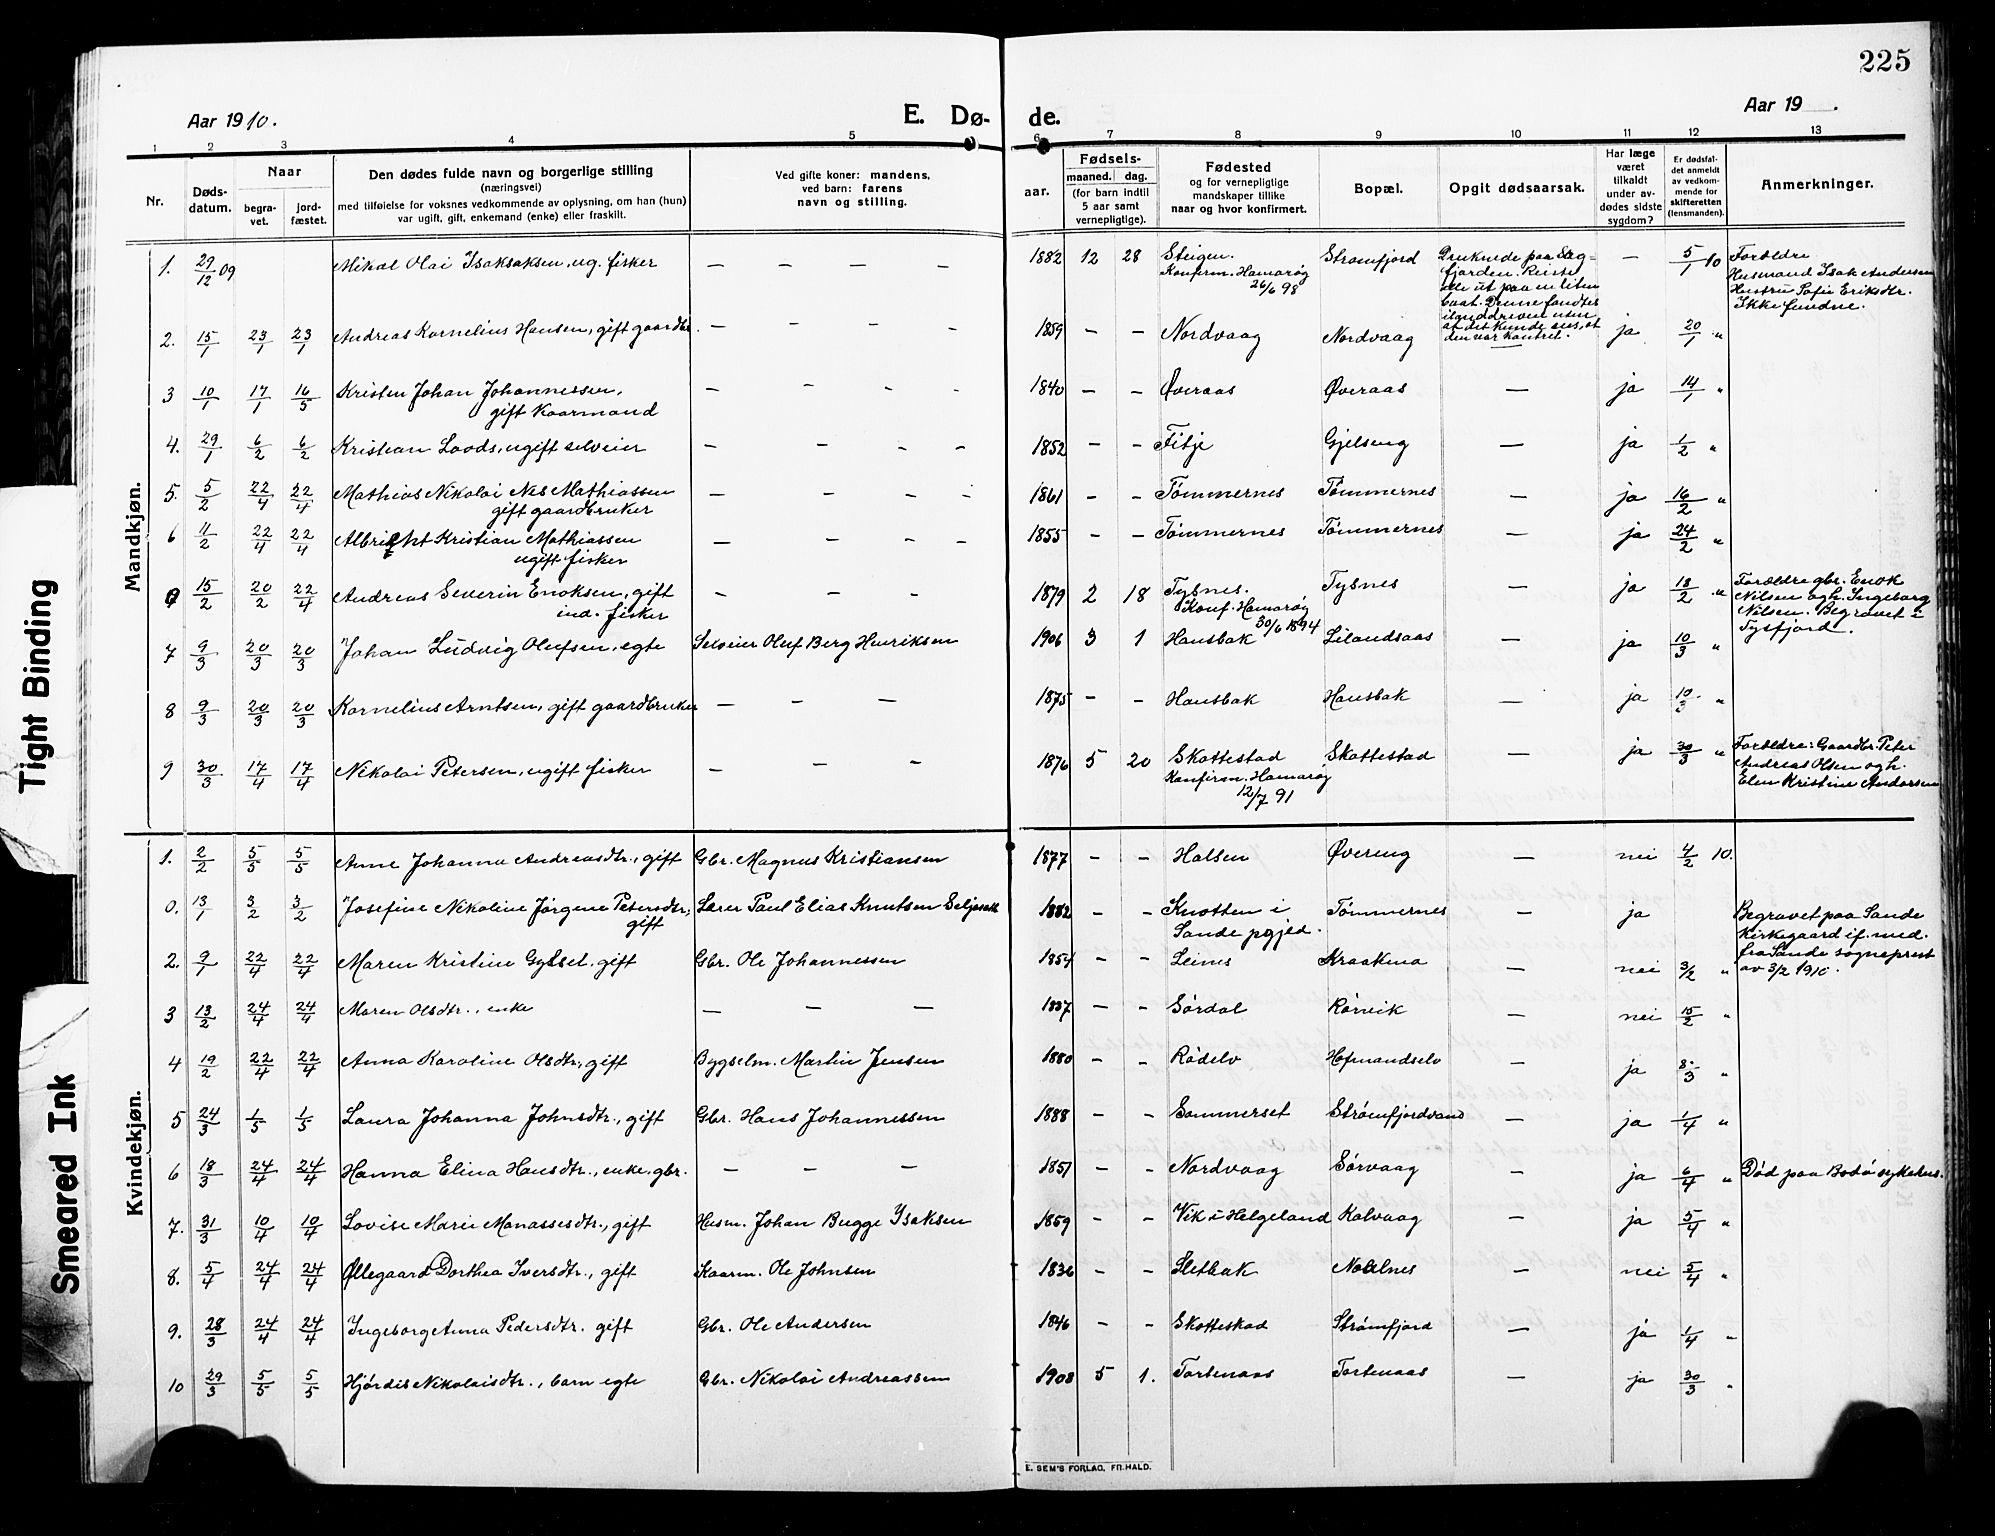 225
Aar 1910.
E. Dø-
de.
Aar 19 .
1 2 3 4 5 6 7 8 9 10 11 12 13
Nr.
Døds-
datum.
Naar
begra-
vet.
jord-
fæstet.
Den dødes fulde navn og borgerlige stilling
(næringsvei)
med tilføielse for voksnes vedkommende av oplysning, om han (hun)
var ugift, gift, enkemand (enke) eller fraskilt.
Ved gifte koner: mandens,
ved barn: farens
navn og stilling.
aar.
Fødsels-
maaned. dag.
(for barn indtil
5 aar samt
vernepligtige).
Fødested
og for vernepligtige
mandskaper tillike
naar og hvor konfirmert.
Bopæl.
Opgit dødsaarsak.
Har læge
været
tilkaldt
under av-
dødes sidste
sygdom?
Er dødsfal-
det anmeldt
av vedkom-
mende for
skifteretten
(lensmanden).
Anmerkninger.
Mandkjøn.
1. 29/12 09 Mikal Olai Isaksaksen, ug. fisker — — — — 1882 12 28 Steigen. Strømfjord — 5/1 10
Konfirm. Hamarøy
26/6 98
Druknede paa Sag-
fjorden. Reiste
alle ut paa en liten
baat. Denne fandtes
ilanddreven uten
at det kunde sees, at
den var kantret.
Forældre
Husmand Isak Andersen
Hustru Sofie Eriksdtr.
Ikke fundne.
2. 15/1 23/1 23/1 Andreas Kornelius Hansen, gift gaardbr. — — — — 1859 — — Nordvaag Nordvaag — ja 20/1 "
3 10/1 17/1 16/5 Kristen Johan Johannessen, — — — — 1840 — — Øveraas Øveraas — ja 14/1 "
gift Kaarmand
4. 29/1 6/2 6/2 Kristian Loods, ugift selveier — — — — 1852 — — Fitje Gjelseng — ja 1/2 "
5. 5/2 22/4 22/4 Mathias Nikolai Nes Mathiassen — — — — 1861 — — Tømmernes Tømmernes — ja 16/2 "
gift gaardbruker
6 11/2 22/4 22/4 Albricht Kristian Mathiassen — — — — 1855 — — Tømmernes Tømmernes — ja 24/2 "
ugift fisker
0 15/2 20/2 22/4 Andreas Severin Enoksen, gift — — — 1879 2 18 Tysnes. Tysnes — ja 18/2 "
ind. fisker
Konf. Hamarøy
30/6 1894
Forældre gbr. Enok
Nilsen og h. Ingeborg
Nilsen. Begravet i
Tysfjord.
7 9/3 20/3 20/3 Johan Ludvig Olufsen, egte Selveier Oluf Berg Henriksen 1906 3 1 Hansbak Lilandsaas — ja 10/3 "
8 9/3 20/3 20/3 Kornelius Arntsen, gift gaardbruker — — — 1875 — — Hansbak Hansbak — ja 10/3 "
9 30/3 17/4 17/4 Nikolai Petersen, ugift fisker — — — 1876 5 20 Skottestad Skottestad — ja 30/3 "
Konfirm. Hamarøy
12/7 91
Forældre: Gaardbr. Peter
Andreas Olsen og h.
Elen Kristine Andersen
Kvindekjøn.
1. 2/2 5/5 5/5 Anne Johanna Andreasdtr., gift Gbr. Magnus Kristiansen 1877 — — Halsen Øvereng — nei 4/2 10.
0. 13/1 3/2 3/2 Josefine Nikoline Jørgine Petersdtr, Lærer Paul Elias Knutsen Seljesæt 1882 — — Knotten i Tømmernes — ja
gift
Sande pgjed.
Begravet paa Sande
Kirkegaard if. med.
fra Sande sogneprest
av 3/2 1910.
2. 9/1 22/4 22/4 Maren Kristine Gylset, gift Gbr. Ole Johannessen 1854 — — Leines Kraakmo — nei 3/2 "
3 13/2 24/4 24/4 Maren Olsdtr., enke — — — 1837 — — Sørdal Rørvik — nei 15/2 "
4 19/2 22/4 22/4 Anna Karoline Olsdtr., gift Bygselm. Martin Jensen 1880 — — Rødelv Hofmandselv — ja 8/3 "
5 24/3 1/5 1/5 Laura Johanna Johnsdtr., gift Gbr. Hans Johannessen 1888 — — Sommerset Strømfjordvand — ja 1/4 "
6 18/3 24/4 24/4 Hanna Elina Hansdtr., enke, gbr. — — — 1851 — — Nordvaag Sørvaag — ja 6/4 " Død paa Bodø sykehus.
7. 31/3 10/4 10/4 Lovise Marie Manassesdtr., gift Husm. Johan Bugge Isaksen 1859 — — Vik i Helgeland Kalvaag — ja 5/4 "
8. 5/4 24/4 24/4 Øllegaard Dorthea Iversdtr., gift Kaarm. Ole Johnsen 1836 — — Sletbak — nei 5/4 "
9. 28/3 24/4 24/4 Ingeborg Anna Pedersdtr. gift Gbr. Ole Andersen 1846 — — Skottestad Strømfjord — ja 1/4 "
10 29/3 5/5 5/5 Hjørdis Nikolaisdtr., barn egte Gbr. Nikolai Andreassen 1908 5 1. Tortenaas Tortenaas — ja 30/3 "
E. SEM'S FORLAG, FR.HALD.
Tight Binding
Smeared Ink